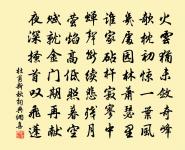 火雲猶未斂奇峰
欹枕初驚一葉風
幾處園林蕭瑟里
誰家砧杵寂寥中
蟬聲斷續悲殘月
螢焰高低照暮空
賦就金門期再獻
夜深搔首嘆飛蓬
杜甫新秋詞典網